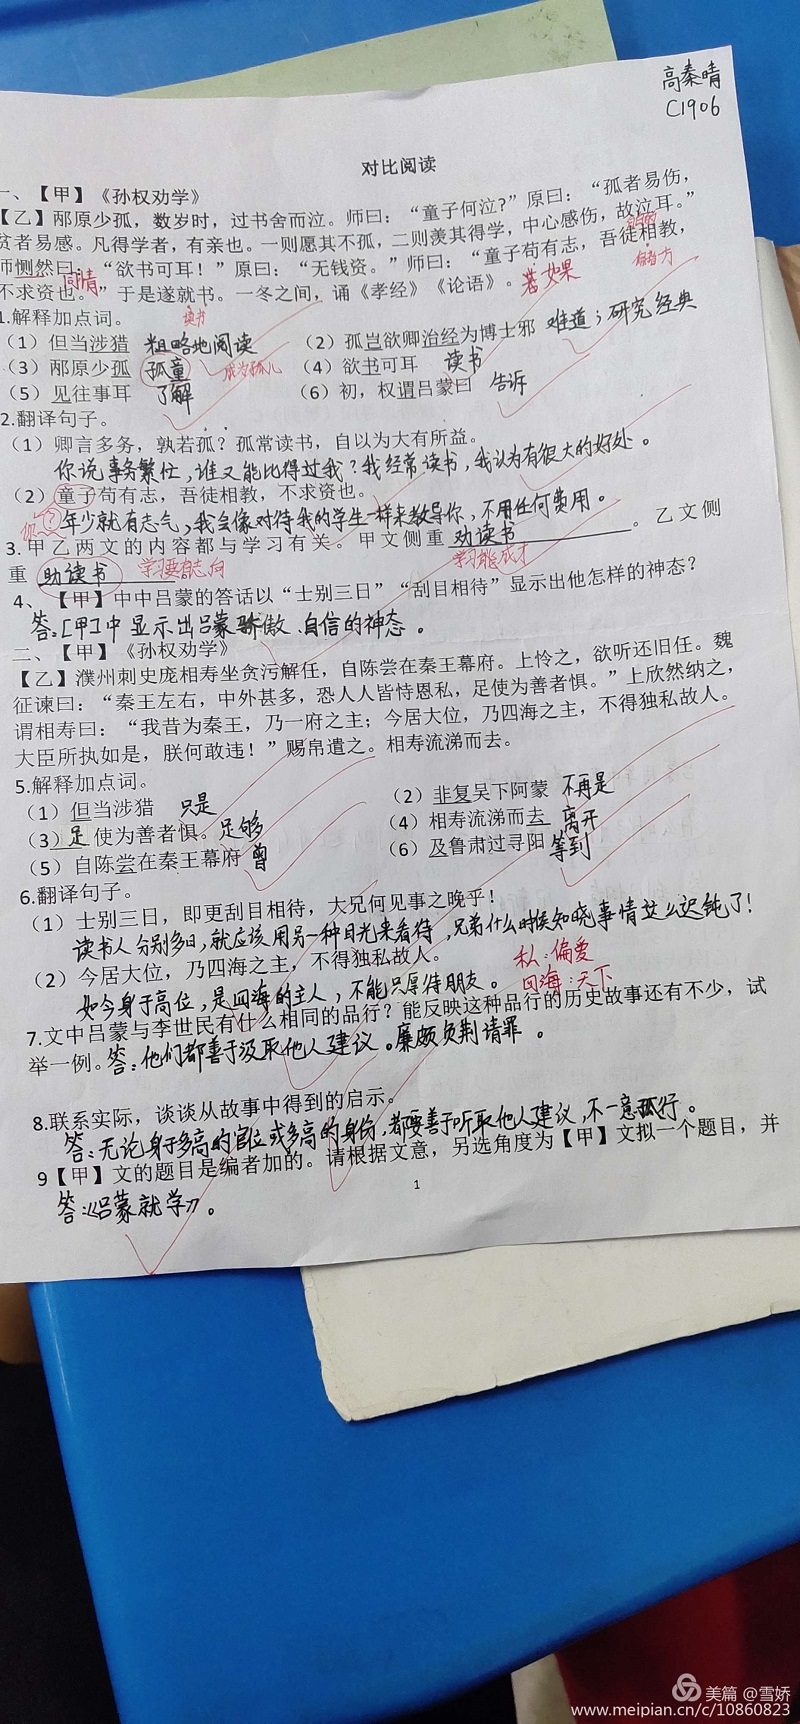 高秦晴
C1906
对比阅读
一、【甲】《孙权劝学》
【乙】邴原少孤，数岁时，过书舍而泣。师曰：“童子何泣？”原曰：“孤者易伤，
贫者易感。凡得学者，有亲也。一则愿其不孤，二则羡其得学，中心感伤，故泣耳。”
师恻然曰：“欲书可耳！”原曰：“无钱资。”师曰：“童子苟有志，吾徒相教，
同情
偏指一方
不求资也。”于是遂就书。一冬之间，诵《孝经》《论语》。
苟：如果
1.解释加点词。
读书
（1）但当涉猎 粗略地阅读 （2）孤岂欲卿治经为博士邪 难道；研究经典
（3）邴原少孤 孤童 成为孤儿 （4）欲书可耳 读书
（5）见往事耳 了解 （6）初，权谓吕蒙曰 告诉
2.翻译句子。
（1）卿言多务，孰若孤？孤常读书，自以为大有所益。
你说事务繁忙，谁又能比得过我？我经常读书，我认为有很大的好处。
（2）童子苟有志，吾徒相教，不求资也。
你？年少就有志气，我会像对待我的学生一样来教导你，不用任何费用。
3.甲乙两文的内容都与学习有关。甲文侧重 劝读书 。乙文侧
学习能成才
重 助读书 学习要有志向
4、【甲】中中吕蒙的答话以“士别三日”“刮目相待”显示出他怎样的神态？
答：[甲]中显示出吕蒙骄傲、自信的神态。
二、【甲】《孙权劝学》
【乙】濮州刺史庞相寿坐贪污解任，自陈尝在秦王幕府。上怜之，欲听还旧任。魏
征谏曰：“秦王左右，中外甚多，恐人人皆恃恩私，足使为善者惧。”上欣然纳之，
谓相寿曰：“我昔为秦王，乃一府之主；今居大位，乃四海之主，不得独私故人。
大臣所执如是，朕何敢违！”赐帛遣之。相寿流涕而去。
5.解释加点词。
（1）但当涉猎 只是 （2）非复吴下阿蒙 不再是
（3）足使为善者惧。足够 （4）相寿流涕而去 离开
（5）自陈尝在秦王幕府 曾 （6）及鲁肃过寻阳 等到
6.翻译句子。
（1）士别三日，即更刮目相待，大兄何见事之晚乎！
读书人分别多日，就应该用另一种目光来看待，兄弟什么时候知晓事情这么迟钝了！
（2）今居大位，乃四海之主，不得独私故人。
私：偏爱
如今身于高位，是四海的主人，不能只厚待朋友。
四海：天下
7.文中吕蒙与李世民有什么相同的品行？能反映这种品行的历史故事还有不少，试
举一例。答：他们都善于汲取他人建议。廉颇负荆请罪。
8.联系实际，谈谈从故事中得到的启示。
答：无论身于多高的官位或多高的身份，都要善于听取他人建议，不一意孤行。
9【甲】文的题目是编者加的。请根据文意，另选角度为【甲】文拟一个题目，并
答：《吕蒙就学》。
1
美篇 @雪娇
www.meipian.cn/c/10860823